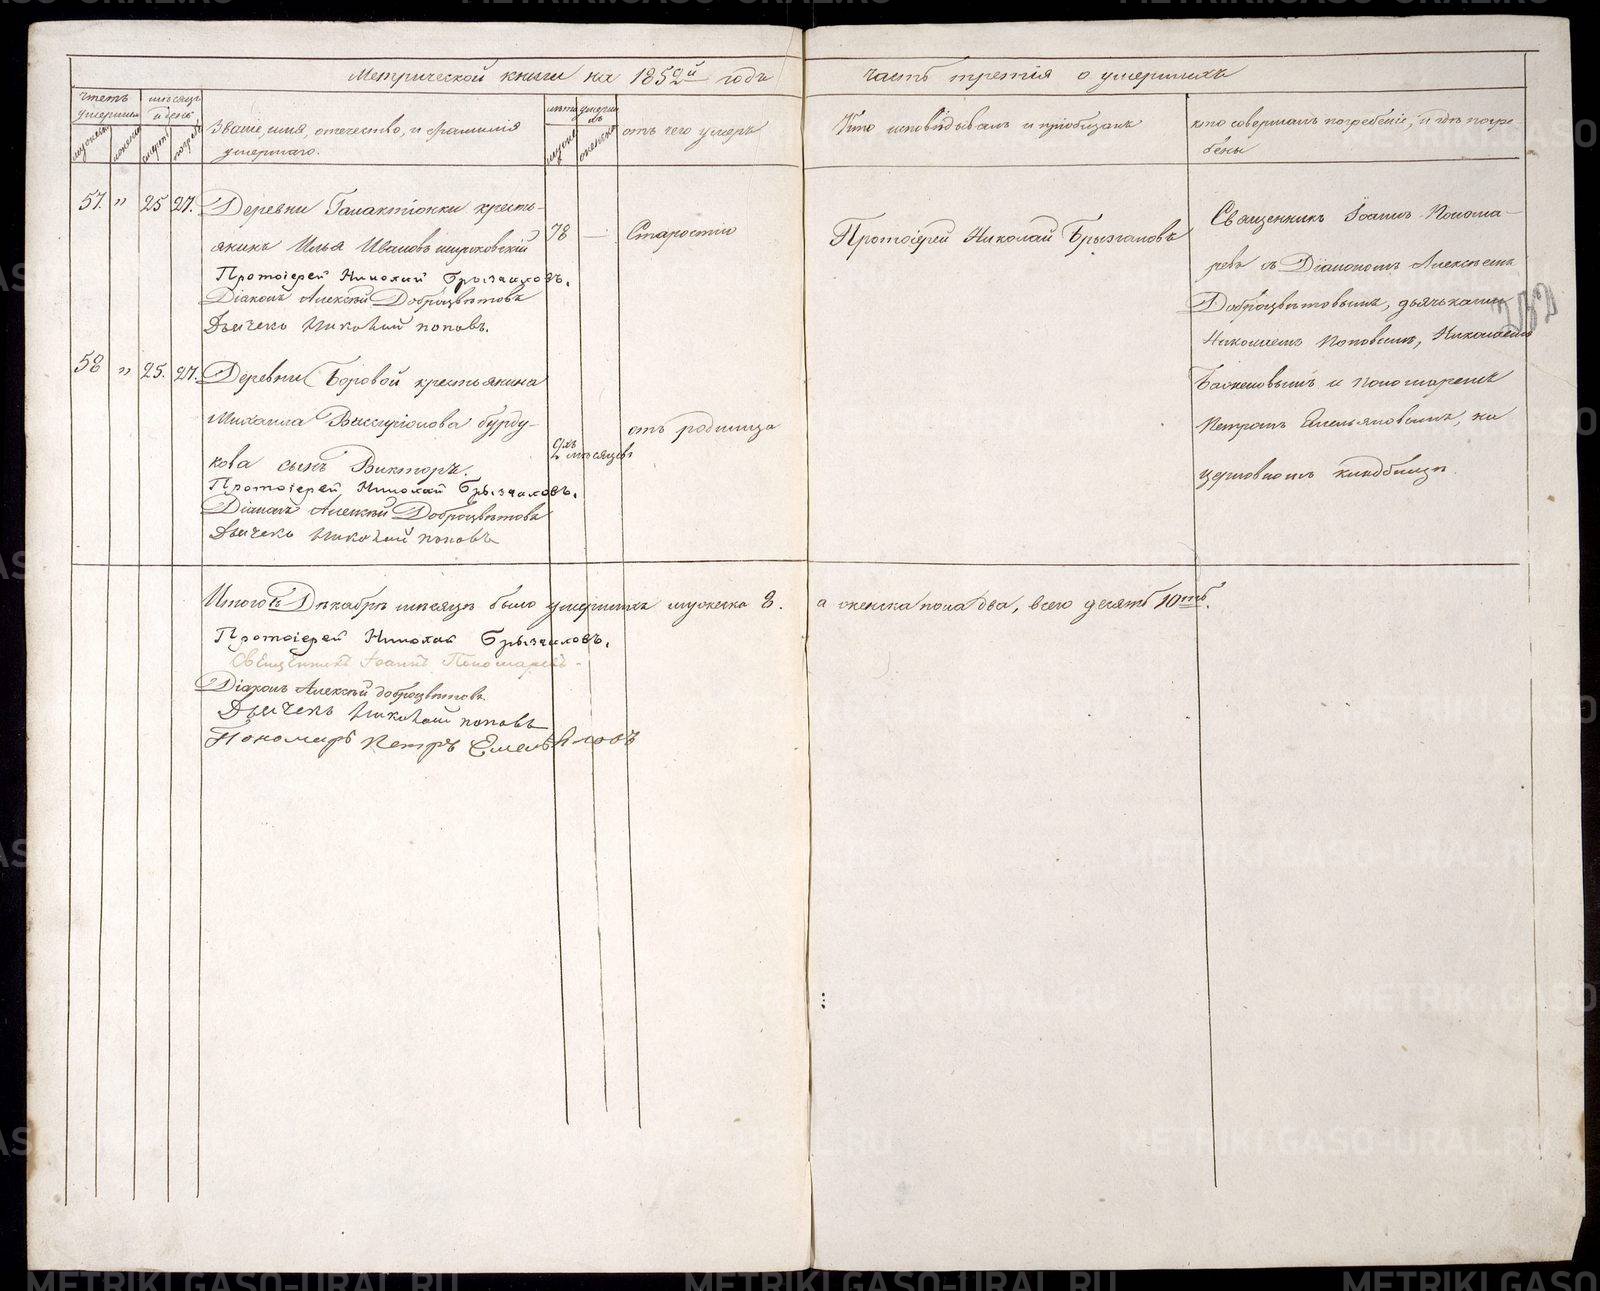 Метрической книги на 1852й годъ
часть третія о умершихъ
счетъ умершихъ
мѣсяцъ и день
Званіе, имя, отечество, и фамилія
умершаго.
лѣта умершихъ
отъ чего умеръ
Кто исповѣдывалъ и пріобщалъ
кто совершалъ погребеніе, и гдѣ погре
бены
мужеска
женска
57. " 25 27. Деревни Галактіонки кресть-
янинъ Илья Ивановъ широковскій
78 — Старостію
Протоіерей Николай Брызгаловъ
Священникъ Іоаннъ Понома-
ревъ съ Діакономъ Алексѣемъ
Доброцвѣтовымъ, дьячьками
Николаемъ Поповымъ, Николаемъ
и пономаремъ
Петромъ Емельяновымъ, на
церковномъ кладбищѣ.
Протоіерей Николай Брызгаловъ.
Діаконъ Алексѣй Доброцвѣтовъ
Дьячекъ Николай поповъ.
58 " 25. 27. Деревни Боровой крестьянина
Михаила Виссаріонова бурду-
кова сынъ Викторъ.
2хъ мѣсяцевъ
отъ родимца
Протоіерей Николай Брызгаловъ.
Діаконъ Алексѣй Доброцвѣтовъ
Дьячекъ Николай поповъ
Итого въ Декабрѣ мѣсяцѣ было умершихъ мужеска 8. а женска пола два, всего десять 10ть.
Протоіерей Николай Брызгаловъ.
Священникъ Іоаннъ Пономаревъ.
Діаконъ Алексѣй доброцвѣтовъ
Дьячекъ Николай поповъ
Пономарь Петръ Емельяновъ
METRIKI.GASO-URAL.RU